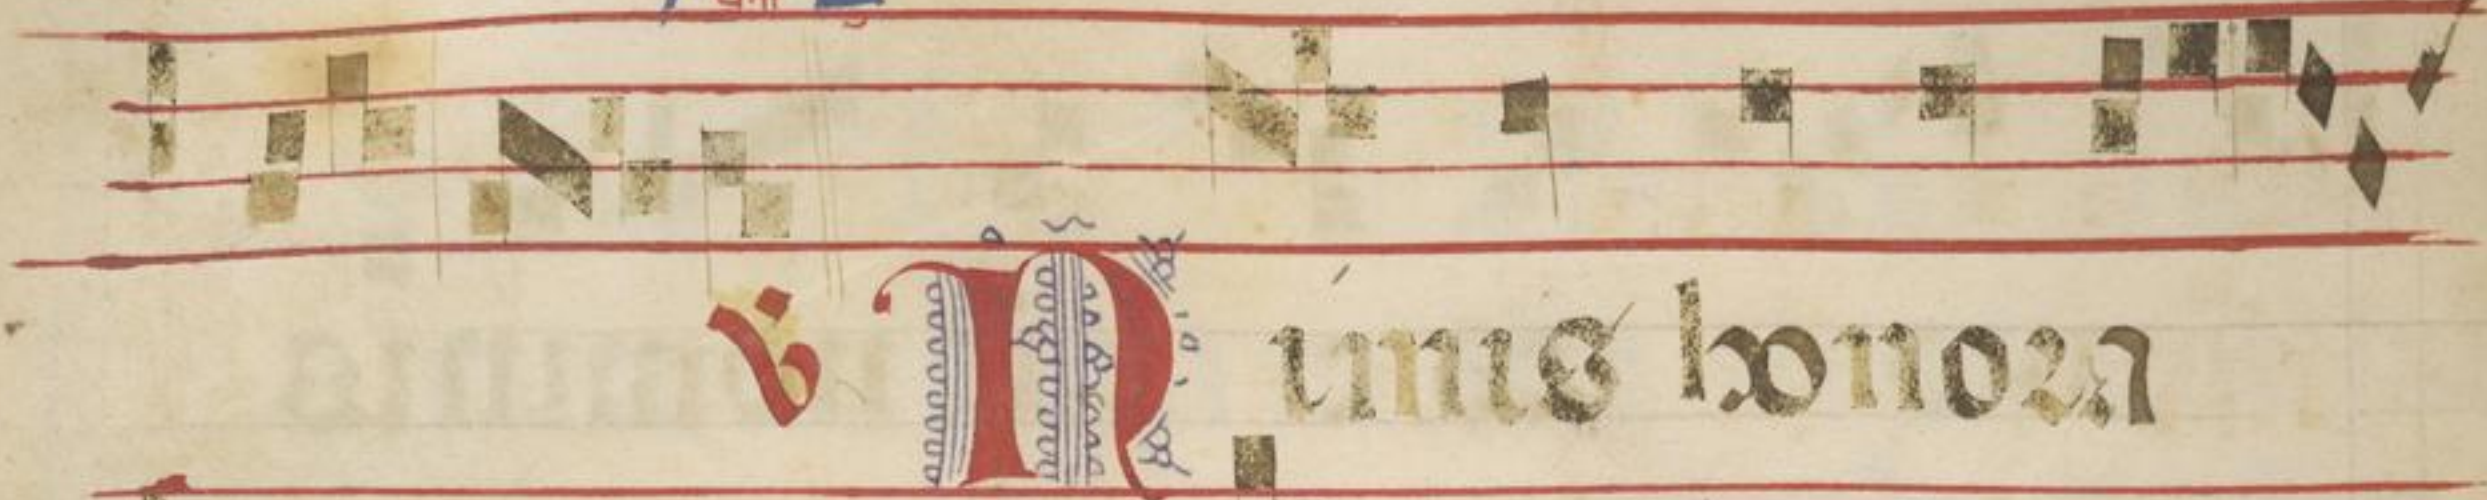 v̇ Nimis honora